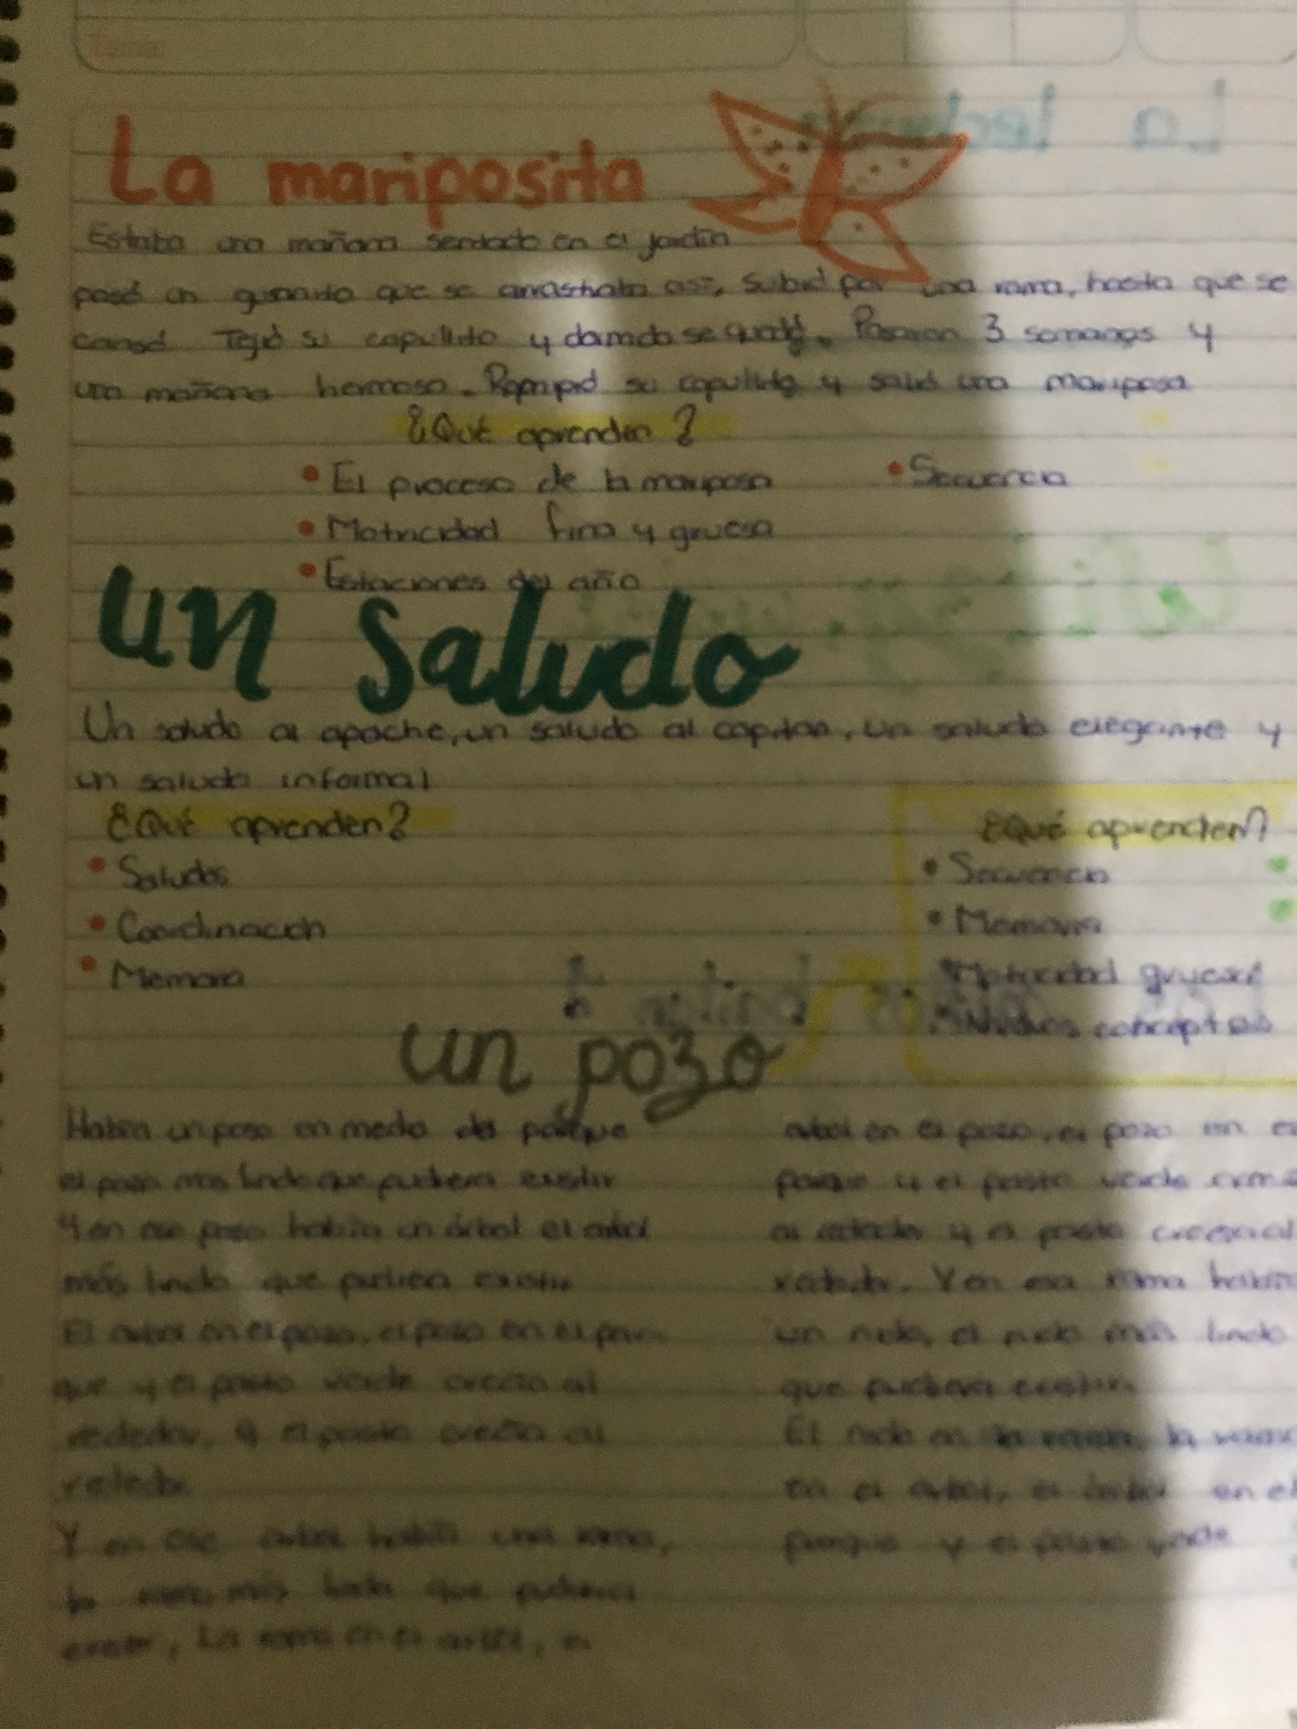 La mariposita
Estaba una mañana sentado en el jardín
pasó un gusanito que se arrastraba así, subió por una rama, hasta que se
cansó Tejió su capullito y dormido se quedó. Pasaron 3 semanas y
una mañana hermosa. Rompió su capullito y salió una mariposa
¿Qué aprenden?
• El proceso de la mariposa
• Secuencia
• Motricidad fina y gruesa
• Estaciones del año
un saludo
Un saludo al apache, un saludo al capitan, un saludo elegante y
un saludo informal
¿Qué aprenden?
• Saludos
• Coordinación
• Memoria
¿Qué aprenden?
• Secuencia
• Memoria
• Motricidad gruesa
• Nuevos conceptos
un pozo
Había un poso en medio del parque
el poso más lindo que pudiera existir
Y en ese poso había un árbol el árbol
más lindo que pudiera existir
El arbol en el pozo, el pozo en el par-
que y el pasto verde crecía al
rededor, y el pasto crecía al
rededor
Y en ese arbol había una rama,
la rama más linda que pudiera
existir, La rama en el arbol, el
arbol en el pozo, el pozo en el
parque y el pasto verde
al rededor y el pasto crecía al
rededor. Y en esa rama había
un nido, el nido más lindo
que pudiera existir.
El nido en la rama, la rama
en el arbol, el árbol en el
parque y el pasto verde